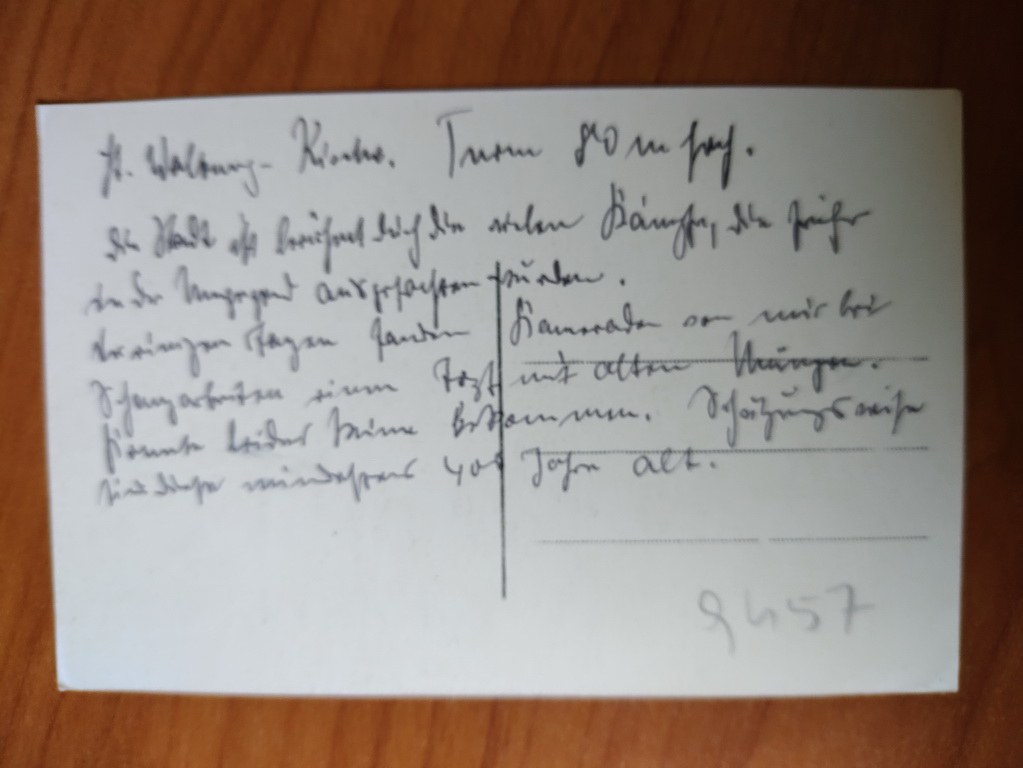 St. Walburg-Kirche. Turm 80 m hoch.
Die Stadt ist berühmt durch die vielen Kämpfe, die früher
in der Umgegend ausgefochten wurden.
Vor einigen Tagen fanden Kameraden von mir bei
Schanzarbeiten einen Topf mit alten Münzen.
Konnte leider keine bekommen. Schätzungsweise
sind diese mindestens 400 Jahre alt.
9457